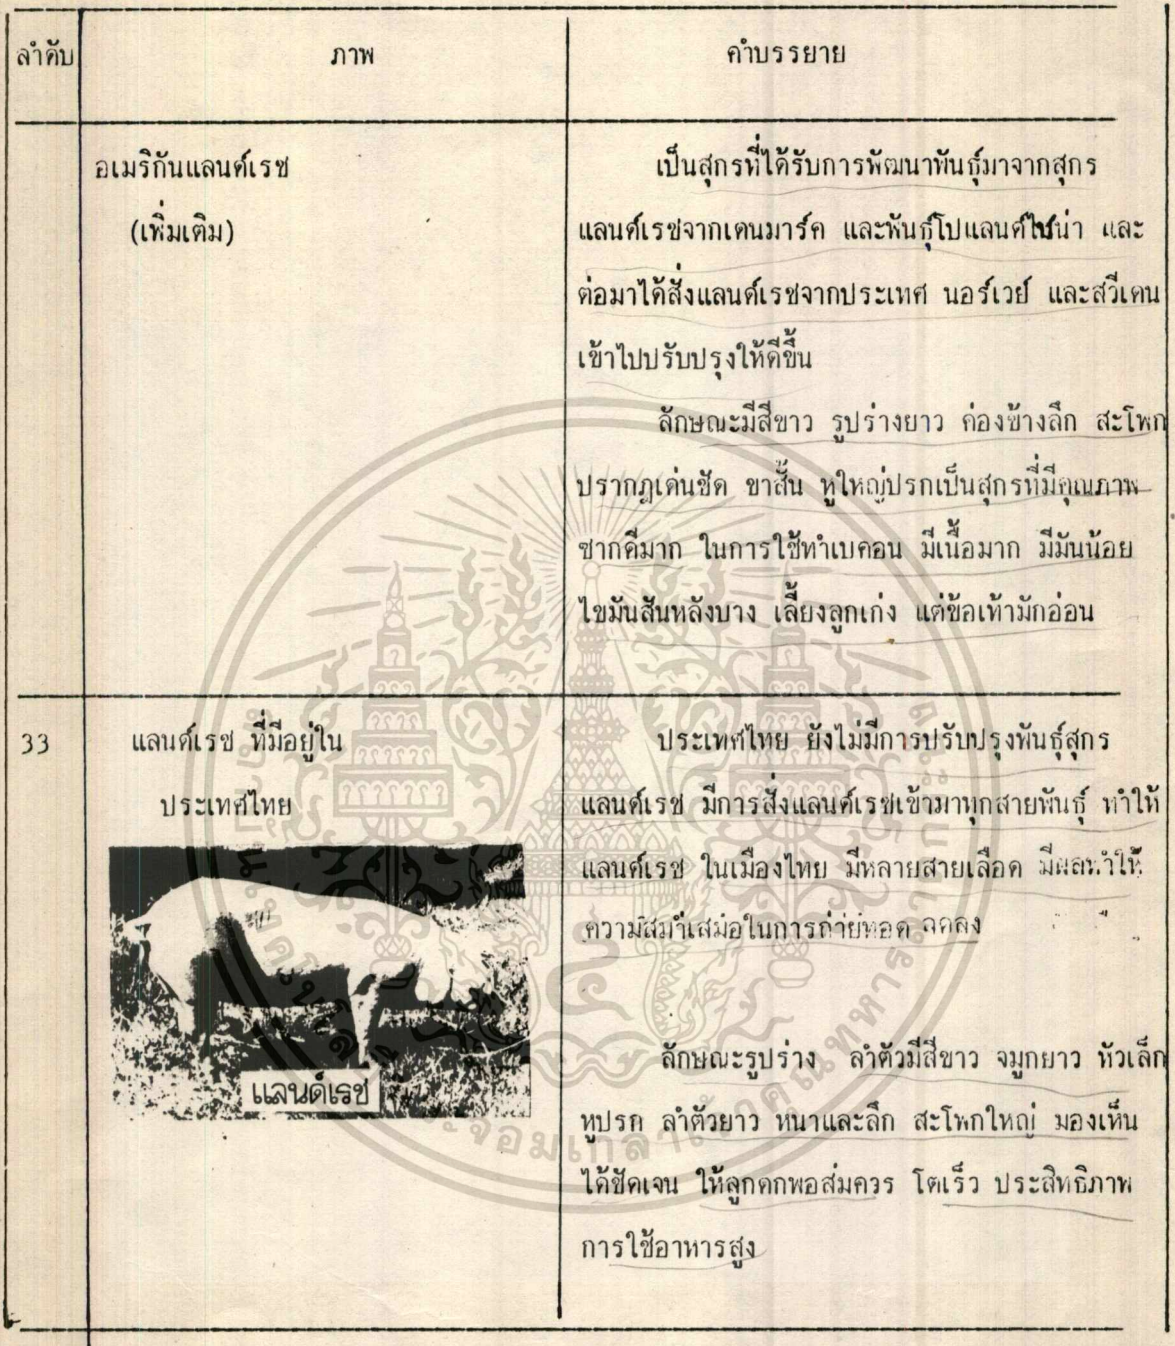 ลำดับ
ภาพ
คำบรรยาย
อเมริกันแลนด์เรซ
(เพิ่มเติม)
เป็นสุกรที่ได้รับการพัฒนาพันธุ์มาจากสุกร
แลนด์เรซจากเดนมาร์ค และพันธุ์โปแลนด์ไชน่า และ
ต่อมาได้สั่งแลนด์เรซจากประเทศ นอร์เวย์ และสวีเดน
เข้าไปปรับปรุงให้ดีขึ้น
ลักษณะมีสีขาว รูปร่างยาว ค่องข้างลึก สะโพก
ปรากฏเด่นชัด ขาสั้น หูใหญ่ปรกเป็นสุกรที่มีคุณภาพ
ซากดีมาก ในการใช้ทำเบคอน มีเนื้อมาก มีมันน้อย
ไขมันสันหลังบาง เลี้ยงลูกเก่ง แต่ข้อเท้ามักอ่อน
33
แลนด์เรซ ที่มีอยู่ใน
ประเทศไทย
แลนด์เรซ
ประเทศไทย ยังไม่มีการปรับปรุงพันธุ์สุกร
แลนด์เรซ มีการสั่งแลนด์เรซเข้ามาทุกสายพันธุ์ ทำให้
แลนด์เรซ ในเมืองไทย มีหลายสายเลือด มีผลทำให้
ความสม่ำเสมอในการถ่ายทอด ลดลง
ลักษณะรูปร่าง ลำตัวมีสีขาว จมูกยาว หัวเล็ก
หูปรก ลำตัวยาว หนาและลึก สะโพกใหญ่ มองเห็น
ได้ชัดเจน ให้ลูกดกพอสมควร โตเร็ว ประสิทธิภาพ
การใช้อาหารสูง